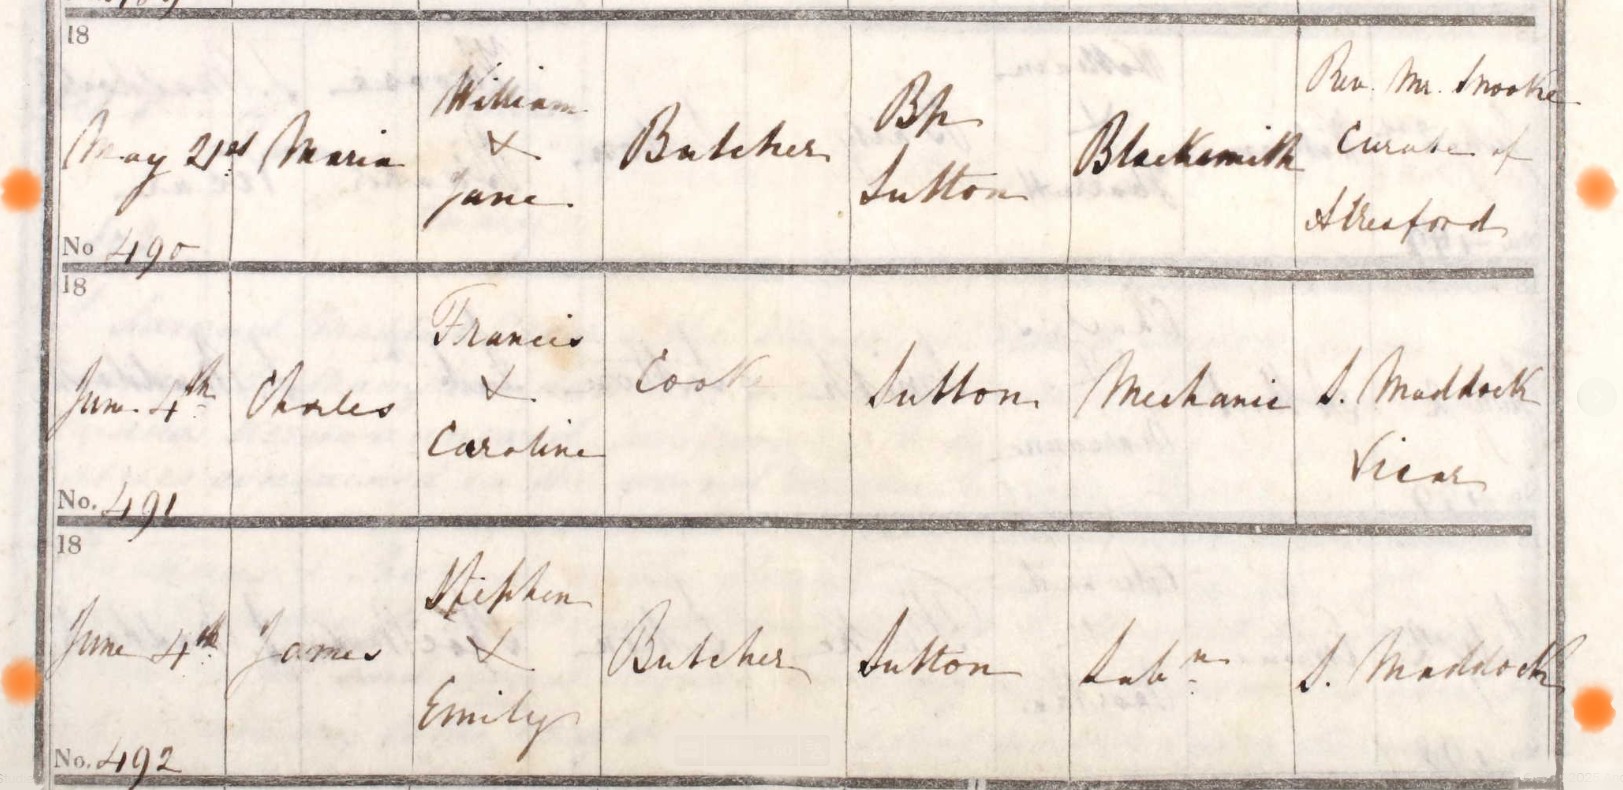 18
May 21st
Maria
William
&
Jane.
Butcher
Bp
Sutton
Blacksmith
Rev. Mr. Snooke
Curate of
No 490
18
June 4th
Charles
Francis
&
Caroline
Cooke
Sutton
Mechanic
S. Maddock
Vicar
No. 491
18
June 4th
James
Stephen
&
Emily
Butcher
Sutton
Labr
S. Maddock
No. 492